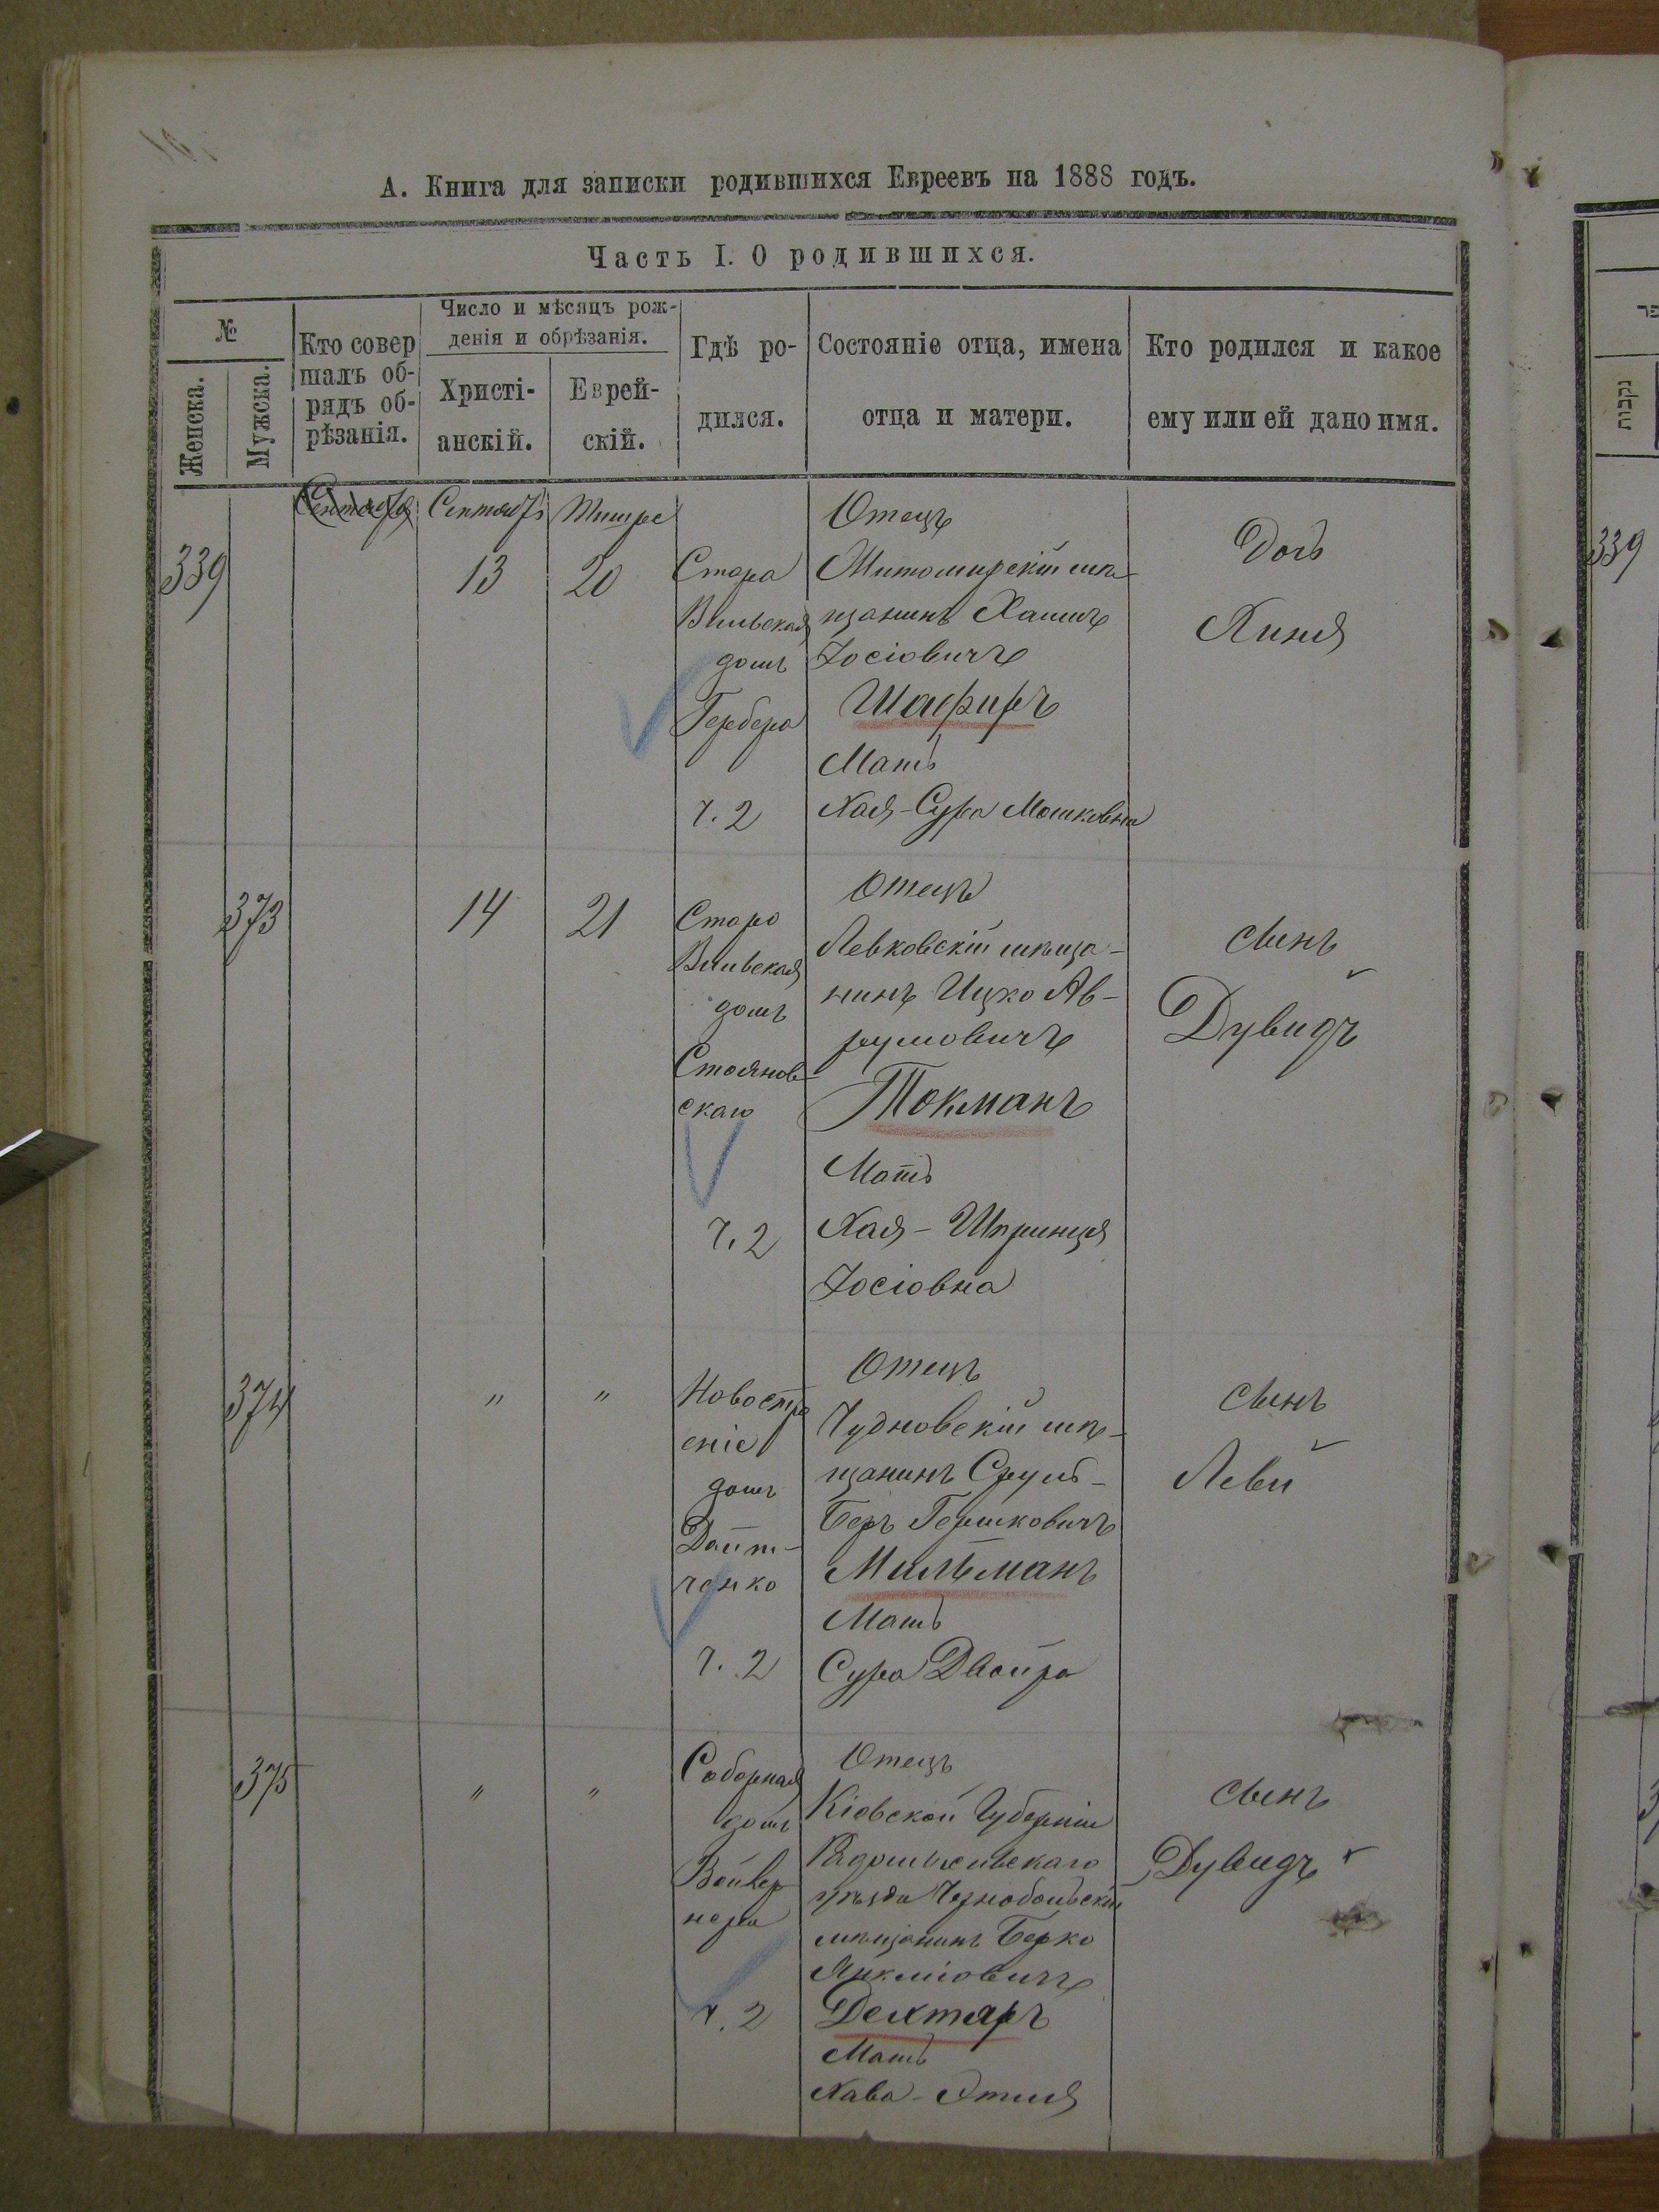 А. Книга для записки родившихся Евреевъ на 1888 годъ.
Часть I. О родившихся.
№
Женска.
Мужска.
Кто совер
шалъ об-
рядъ об-
рѣзанія.
Число и мѣсяцъ рож-
денія и обрѣзанія.
Христі-
анскій.
Еврей-
скій.
Гдѣ ро-
дился.
Состояніе отца, имена
отца и матери.
Кто родился и какое
ему или ей дано имя.
נקבות
339
13
20
Стара
Вильская
домъ
Гербера
ч. 2
Отецъ
Житомирскій мѣ-
щанинъ Хаимъ
Іосіовичъ
Шафиръ
Мать
Хая-Сура Мошковна
Дочь
Хиня
339
373
14
21
Старо
Вильская
домъ
Стоянов-
скаго
ч. 2
Отецъ
Левковскій мѣща-
нинъ Ицко Ав-
румовичъ
Токманъ
Мать
Хая-Шпринця
Іосіовна
сынъ
Дувидъ
374
"
"
Новостро
еніе
домъ
ч. 2
Отецъ
Чудновскій мѣ-
щанинъ Сруль-
Беръ Гершковичъ
Мильманъ
Мать
Сура Двойра
сынъ
Леви
375
"
"
Соборная
домъ
ч. 2
Отецъ
Кіевской Губерніи
Радомысльскаго
уѣзда Чернобыльскій
мѣщанинъ Берко
Янкліовичъ
Дехтяръ
Мать
Хава-Этля
сынъ
Дувидъ